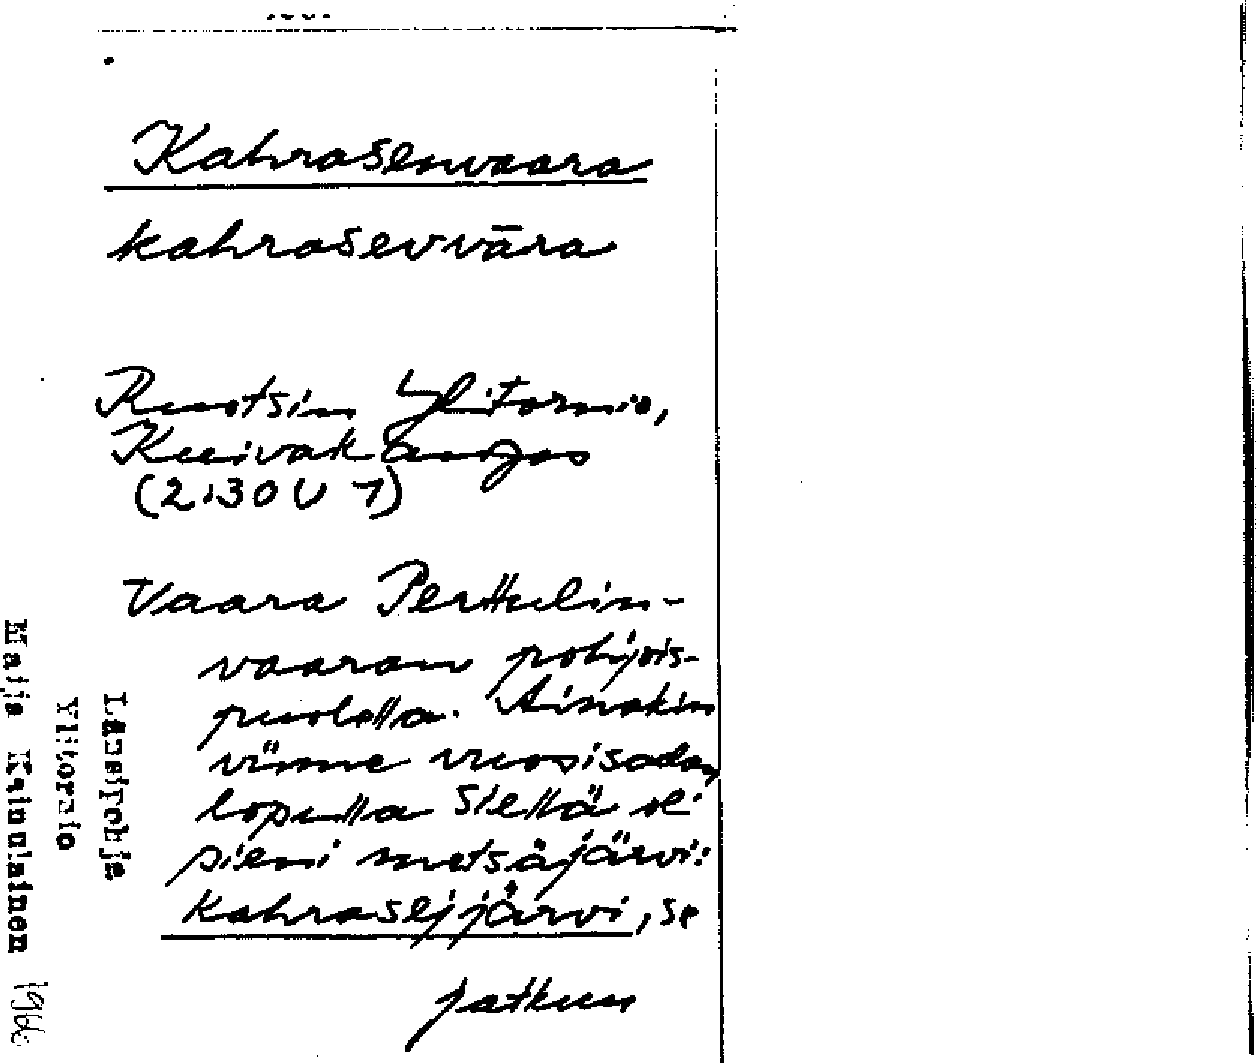 Kahrasenvaara
kahrasevvāra
Ruotsin Ylitornio,
Kuivakangas
(2:30 U 7)
Vaara Perttulin-
vaaran pohjois-
puolella. Ainakin
viime vuosisadan
lopulla siellä oli
pieni metsäjärvi:
kahrasejjärvi, se
jatkuu
Länsipohja
Ylitornio
Maija Kainulainen